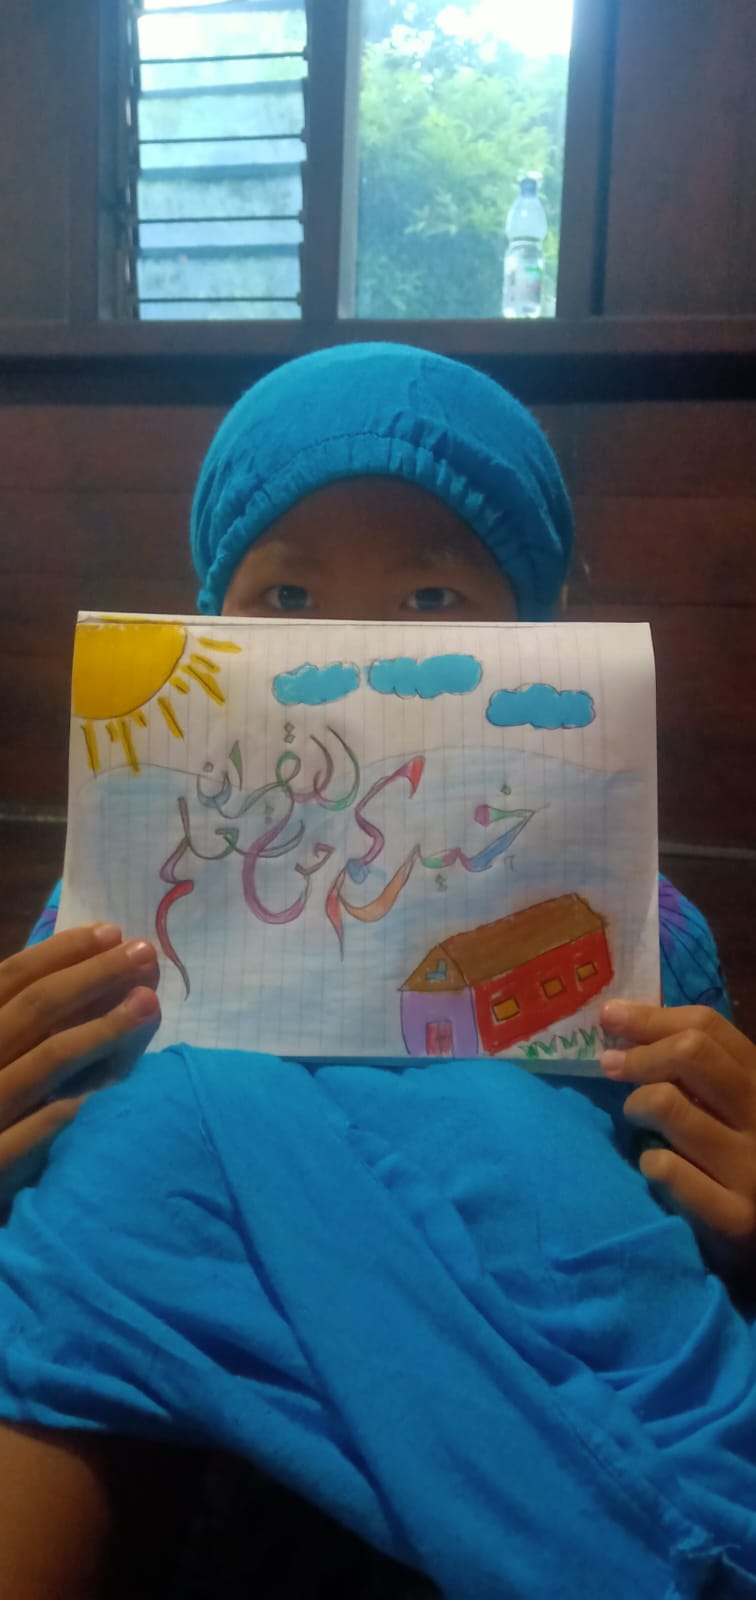 خيركم من تعلم القران